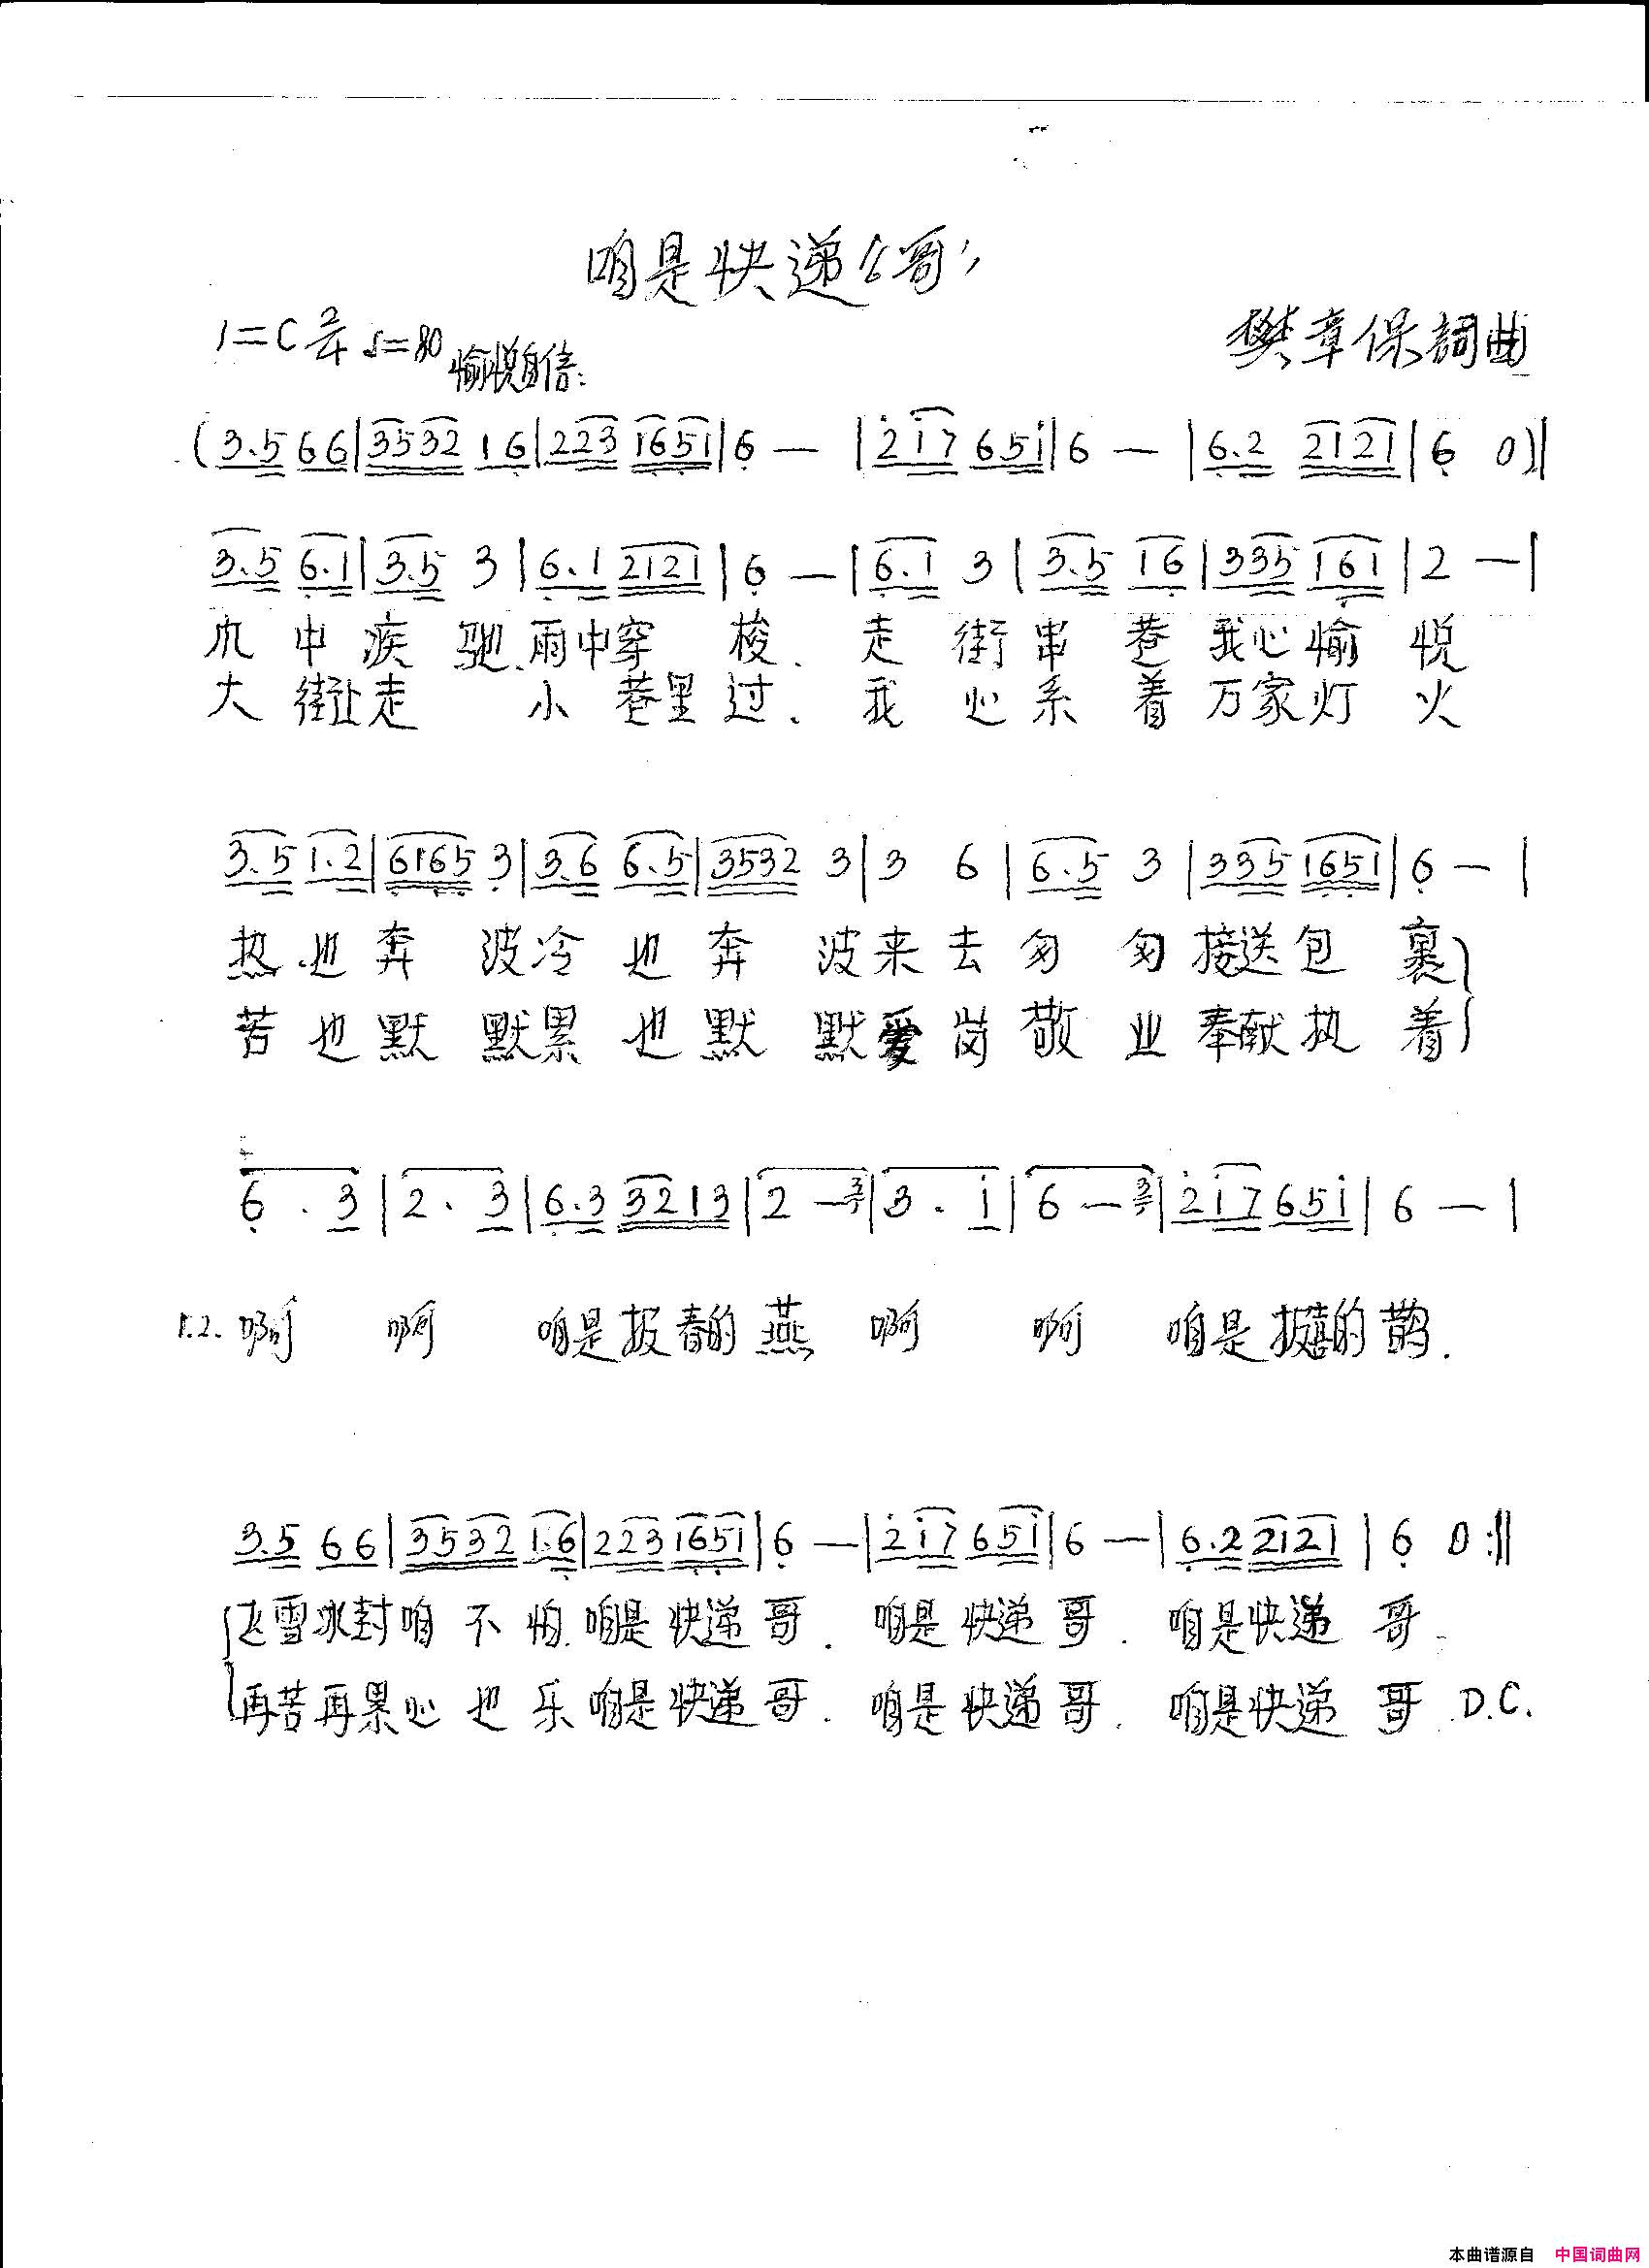 咱是快递“哥”
1=C 2/4 ♩=80 愉悦自信:
樊章保詞曲
(3.5 66|3532 16|223 1651|6 —|2i7 65i|6 —|6.2 2121|6 0)|
3.5 6.1|3.5 3|6.1 2121|6 —|6.1 3|3.5 16|335 161|2 —|
中疾驰、雨中穿梭、走街串巷我心愉悦
大街让走 小巷里过、我心系着万家灯火
3.5 1.2|6165 3|3.6 6.5|3532 3|3 6|6.5 3|335 1651|6 —|
热也奔波冷也奔波来去匆匆接送包裹
苦也默默累也默默爱岗敬业奉献执着
6 . 3|2 . 3|6.3 3213|2 — 3|3 . i|6 — 3|2i7 65i|6 —|
1.2. 啊 啊 咱是报春的燕 啊 啊 咱是报喜的鹊.
3.5 66|3532 1.6|223 1651|6 —|2i7 65i|6 —|6.2 2121|6 0:||
飞雪冰封咱不怕.咱是快递哥.咱是快递哥.咱是快递哥
再苦再累心也乐咱是快递哥.咱是快递哥.咱是快递哥 D.C.
本曲谱源自 中国词曲网